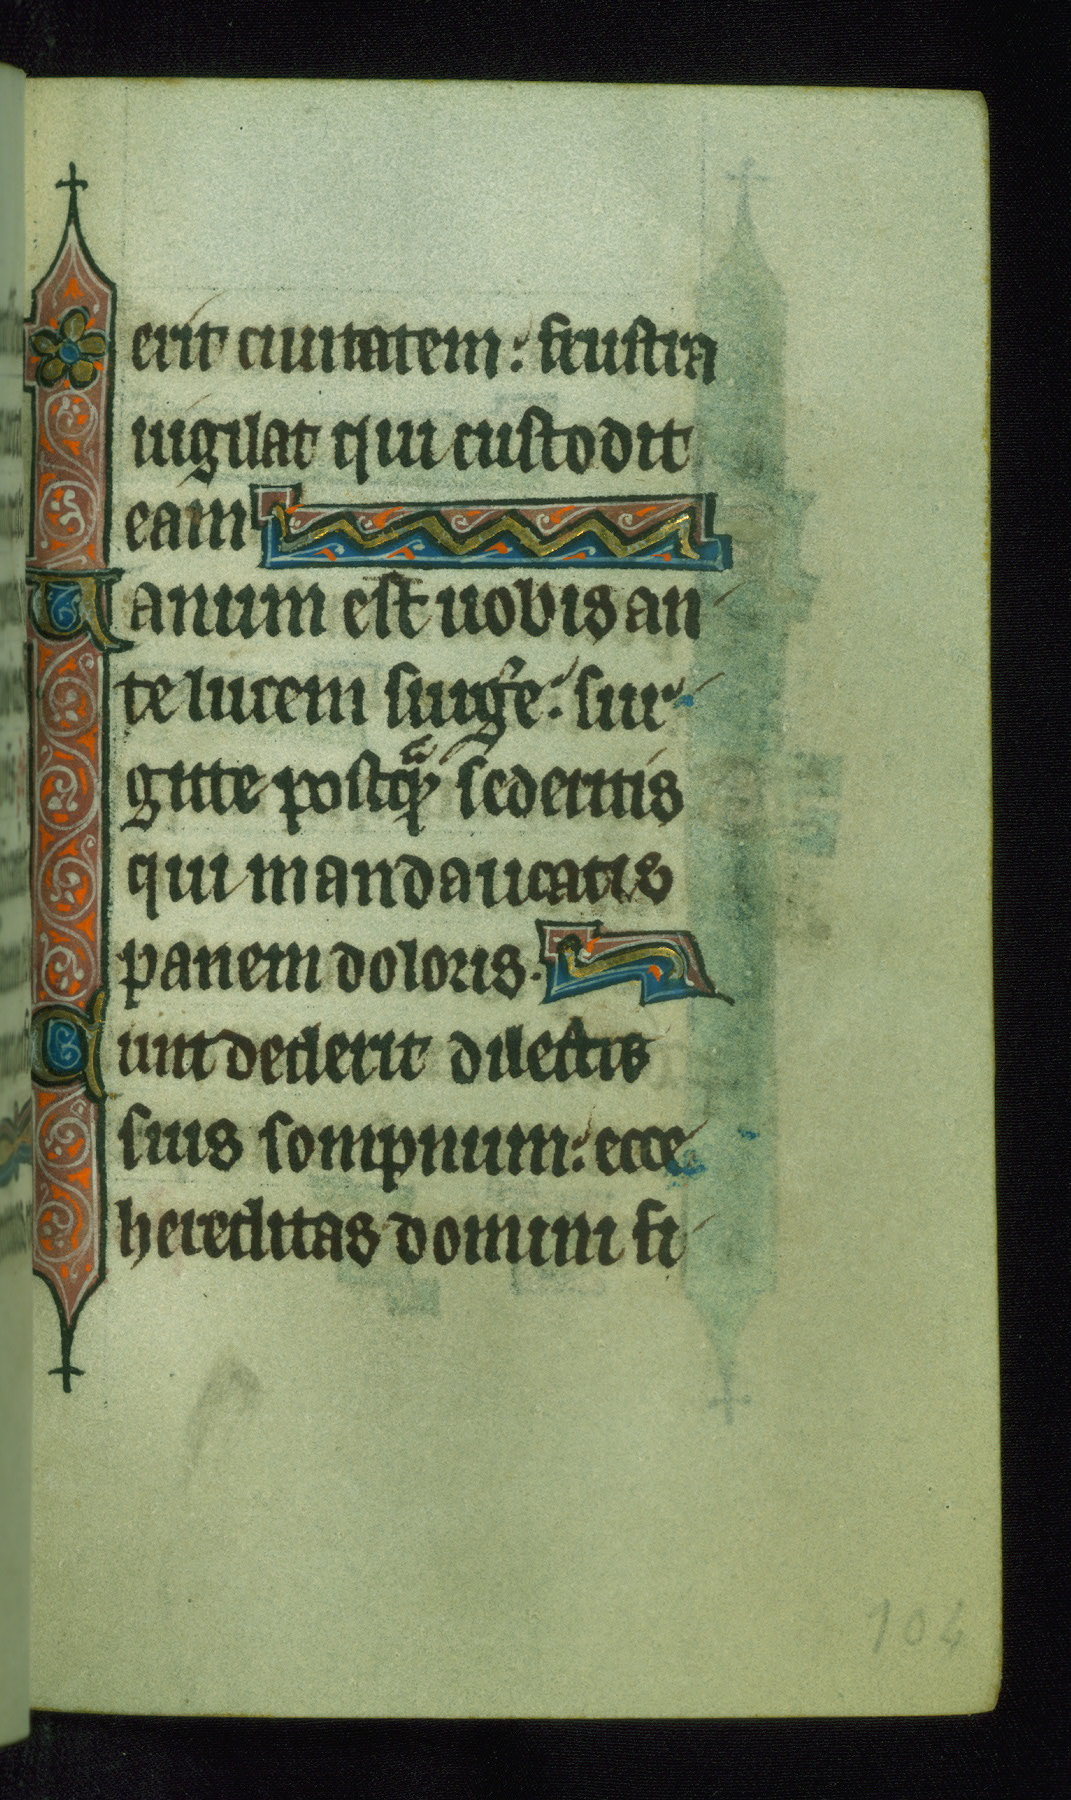 erit ciuitatem: frustra
uigilat qui custodit
eam
Uanum est uobis an
te lucem surg̾e: sur
gite postqᷓ sederitis
qui manducatis
panem doloris.
Cum dederit dilectis
suis sompnum: ecce
hereditas domini fi
104